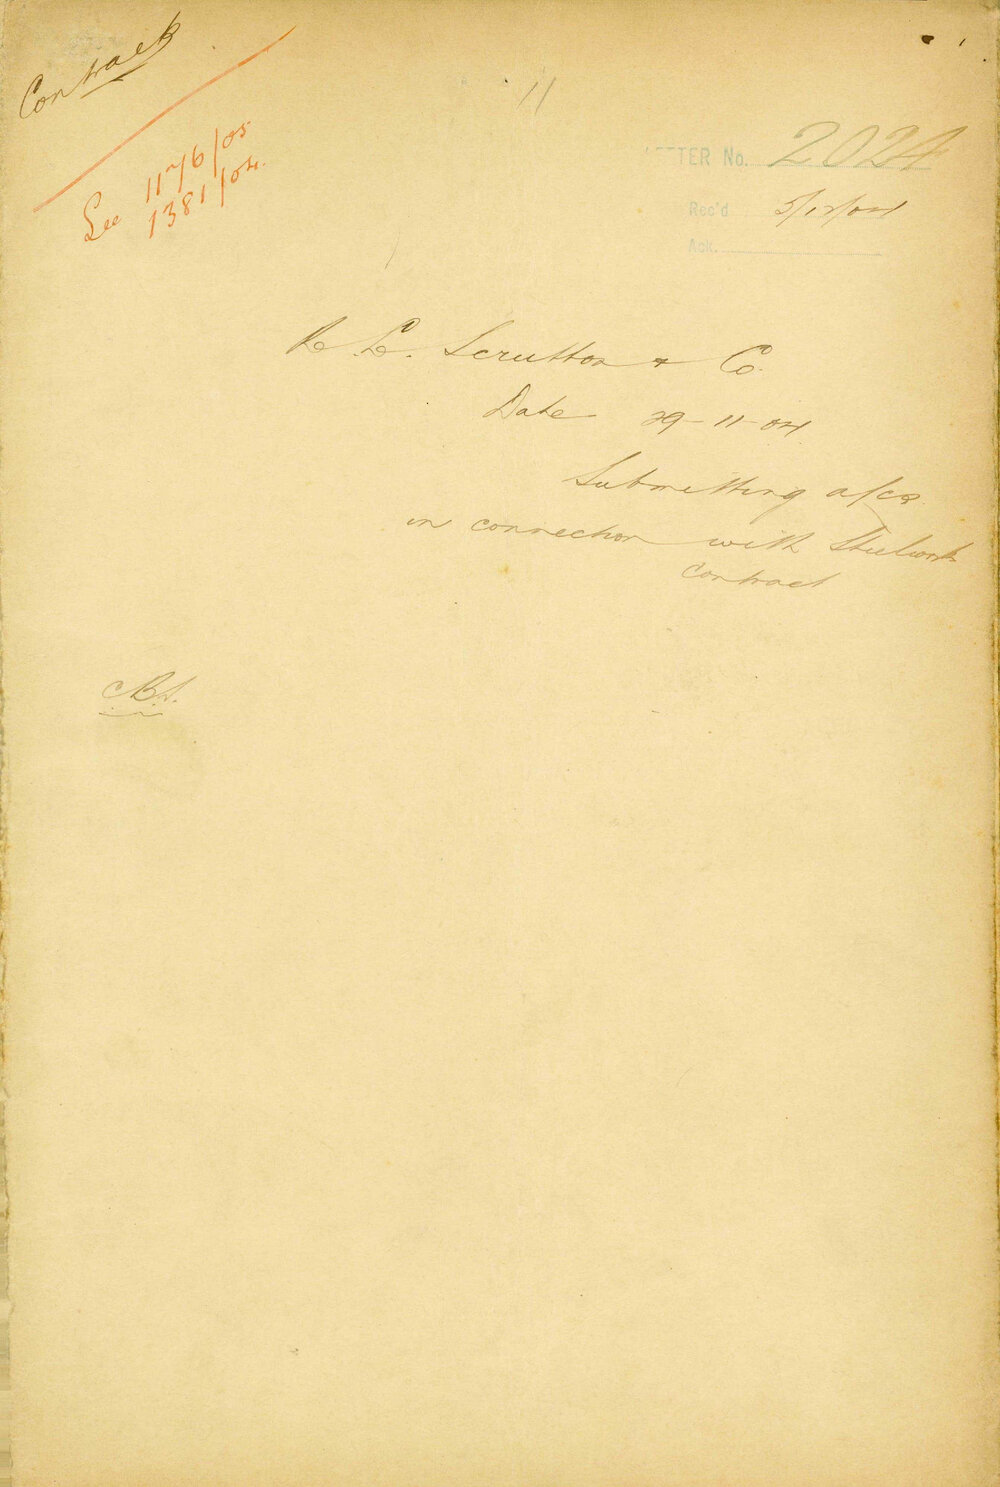 Contract
See 1176/05
1381/04.
11
LETTER No. 2024
Rec'd 5/12/04
Ack.
R. L. Scrutton & Co.
Date 29-11-04.
Submitting a/cs
in connection with Steelwork
contract